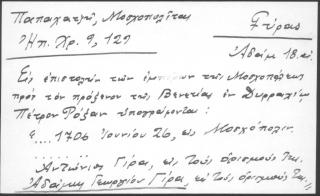 Παπαχατζῆ, Μοσχοπολῖται Γύρας
Ἠπ. Χρ. 9, 127
Ἀδάμ 18.αἰ.
Εἰς ἐπιστολὴν τῶν ἐμπόρων τῆς Μοσχοπόλεως
πρὸς τὸν πρόξενον τῆς Βενετίας ἐν Δυρραχίῳ
Πέτρον Ῥόζαν ὑπογράφονται:
ς.... 1706 Ἰουνίου 26, εἰς Μοσχόπολιν.
Ἀντώνιος Γίρα, εἰς τοὺς ὁρισμούς της.
Ἀδάμης Γεωργίου Γίρα, εἰς τοὺς ὁρισμούς της.